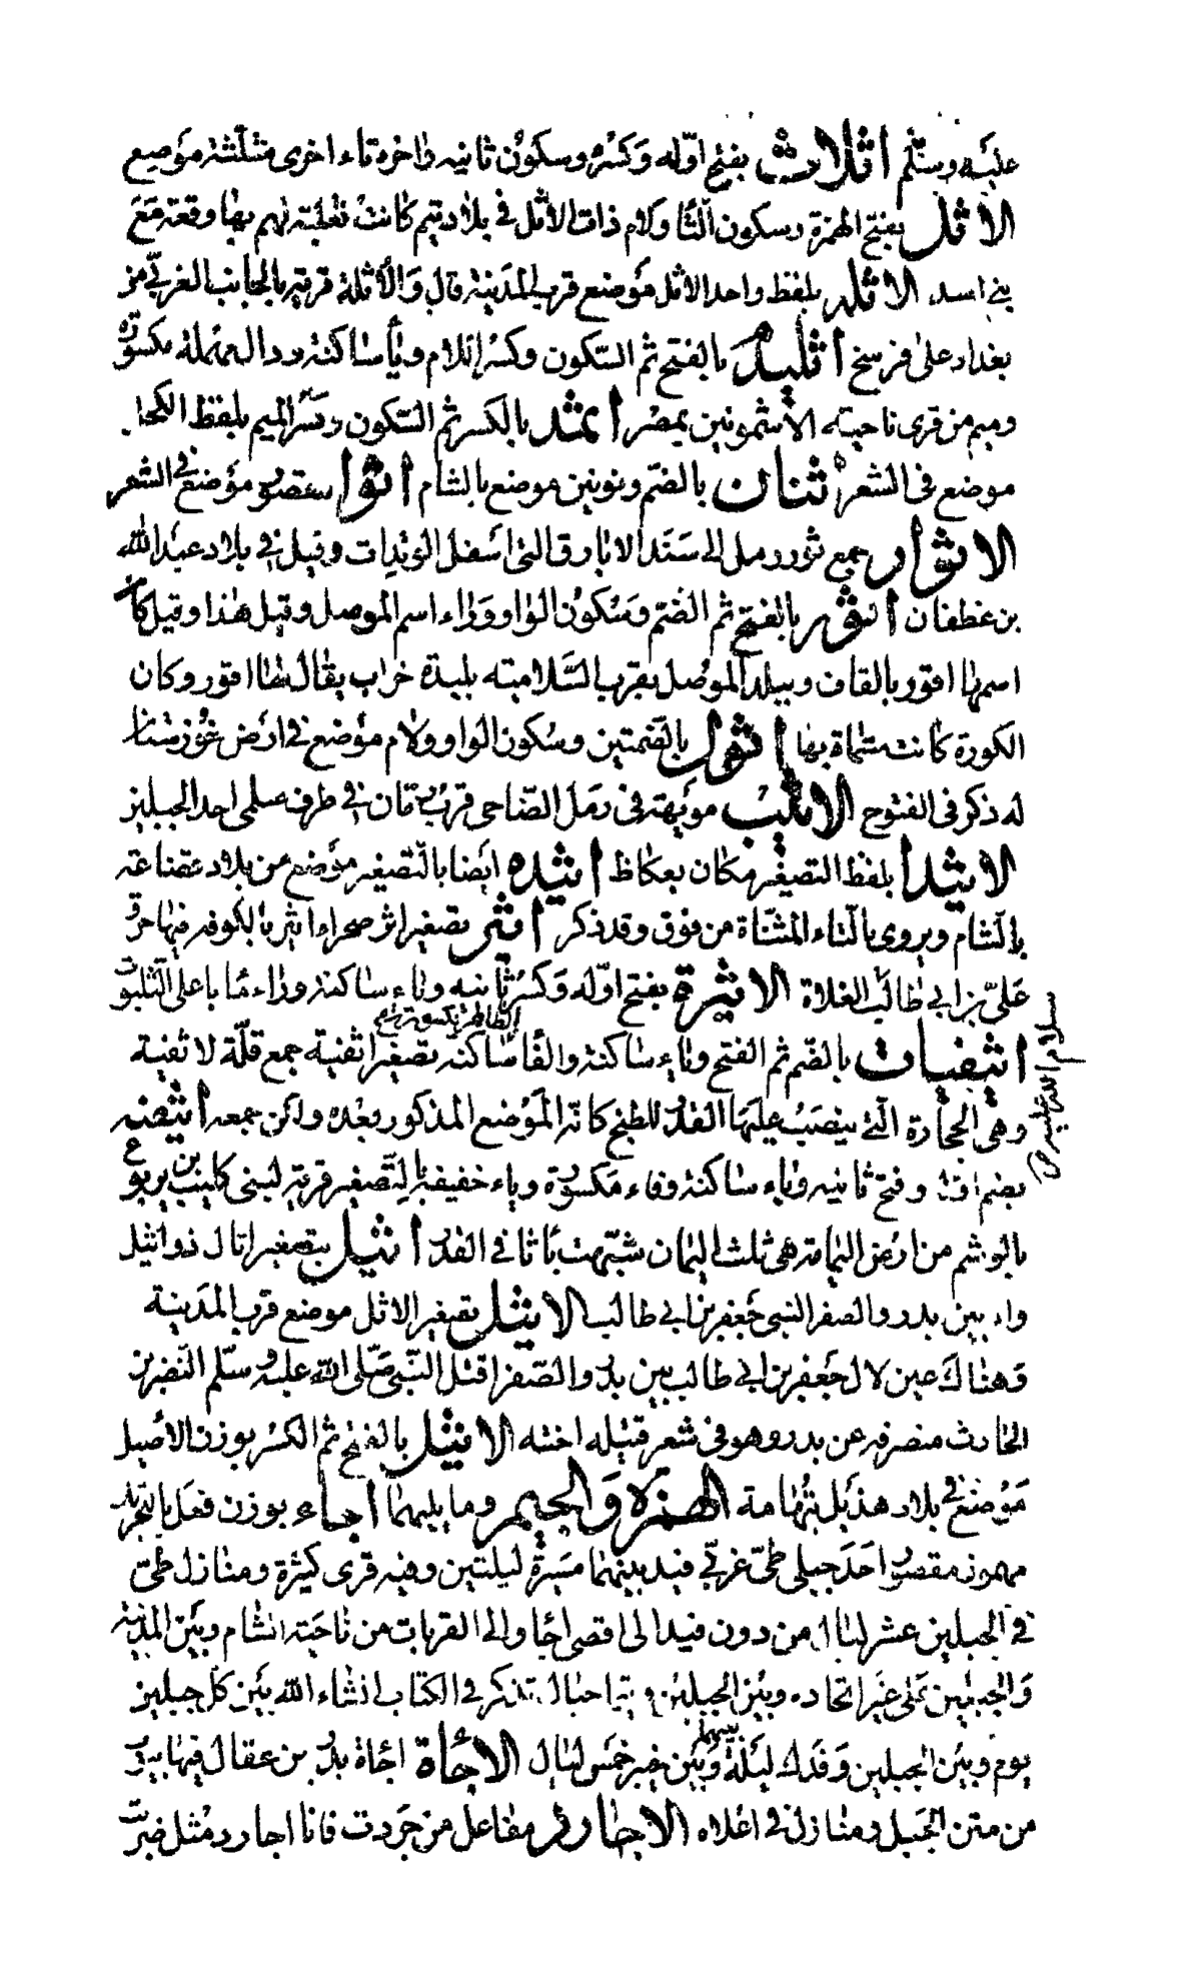 عليه وسلم اثلاث بفتح اوله وكسره وسكون ثانيه واخره ثاء اخرى مثلثة موضع
الاثل بفتح الهمزة وسكون الثا ولام ذات الاثل في بلاد تيم كانت لهم بها وقعة مع
بني اسد الاثلة بلفظ واحد الاثل موضع قرب المدينة قال والاثلة قرية بالجانب الغربي من
بغداد على فرسخ اثليدم بالفتح ثم السكون وكسر اللام وياء ساكنة ودال مهملة مكسورة
وميم من قرى ناحية الاشمونين بمصر اثمد بالكسر ثم السكون وكسر الميم بلفظ الكحل
موضع في الشعر اثنان بالضم ونونين موضع بالشام اثوا مقصور موضع في الشعر
الاثوار جمع ثور رمل الى سند الابارق التي اسفل الوتدات وقيل في بلاد عبد الله
بن غطفان اثور بالفتح ثم الضم وسكون الواو وراء اسم الموصل وقيل هذا وقيل كان
اسمها اقور بالقاف وببلد الموصل بقرب السلامية بليدة خراب يقال لها اقور وكان
الكورة كانت مسماة بها اثول بالضمتين وسكون الواو ولام موضع في ارض خوزستان
له ذكر في الفتوح الاثيب مويهة في رمل الضاحي قرب رمان في طرف سلمى احد الجبلين
الاثيدا بلفظ التصغير مكان بعكاظ اثيده ايضا بالتصغير موضع من بلاد قضاعة
بالشام ويروى بالتاء المثناة من فوق وقد ذكر اثير تصغير اثر صحراء اثير بالكوفة فيها حرق
علي بن ابي طالب الغلاة الاثيرة بفتح اوله وكسر ثانيه وياء ساكنة وراء ماء باعلى الثلبوت
اثيفيات بالضم ثم الفتح وياء ساكنة والفا ساكنه تصغير اثفية جمع قلة لاثفية
وهي الحجارة التي ينصب عليها القدر للطبخ كانه الموضع المذكور بعده ولكن جمعه اثيفيه
بضم اوله وفتح ثانيه وياء ساكنة وفاء مكسورة وياء خفيفة بالتصغير قرية لبني كليب بن يربوع
بالوشم من ارض اليمامة هي ثلث اليمان شبهت باثافي القدر اثيل بتصغير اثال ذو اثيل
واد بين بدر والصفرا لبني جعفر بن ابي طالب الاثيل تصغير الاثل موضع قرب المدينة
وهناك عين لال جعفر بن ابي طالب بين بدر والصفرا قتل النبي صلى الله عليه وسلم النضر بن
الحارث منصرفه عن بدر وهو في شعر قتيله اخته الاثيل بالفتح ثم الكسر بوزن الاصيل
موضع في بلاد هذيل بتهامة الهمزة والجيم وما يليهما اجاء بوزن فعل بالتحريك
مهموز مقصور احد جبلي طي غربي فيد بينهما مسيرة ليلتين وفيه قرى كثيرة ومنازل طي
في الجبلين عشر ليال من دون فيد الى اقصى اجا والى القريات من ناحية الشام وبين المدينة
والجبلين على غير الجاده وبين الجبلين و جبال تذكر في الكتاب انشاء الله بين كل جبلين
يوم وبين الجبلين وفدك ليلة وبينهما وبين خيبر خمس ليال الاجأة اجاة بدر بن عقال فيها بيوت
من متن الجبل ومنازل في اعلاه الاجارد مفاعل من جردت فانا اجارد مثل ضربت